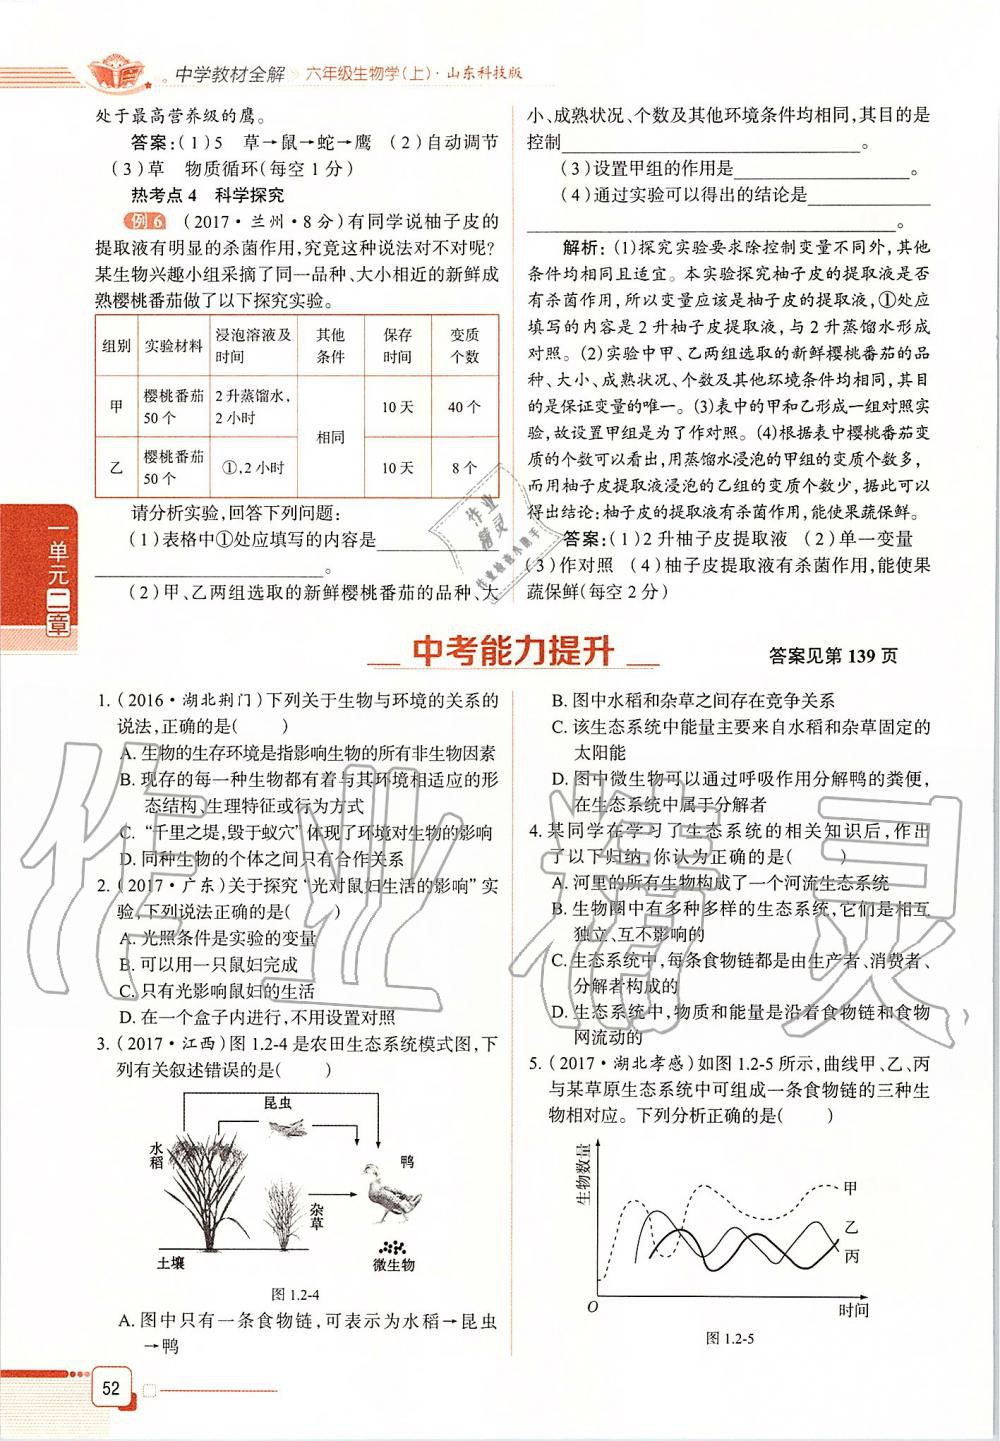 中学教材全解 六年级生物学(上)·山东科技版
处于最高营养级的鹰。
答案:(1)5 草→鼠→蛇→鹰 (2)自动调节
(3)草 物质循环(每空1分)
热考点4 科学探究
例6 (2017·兰州·8分)有同学说柚子皮的
提取液有明显的杀菌作用,究竟这种说法对不对呢?
某生物兴趣小组采摘了同一品种、大小相近的新鲜成
熟樱桃番茄做了以下探究实验。
组别 实验材料 浸泡溶液及时间 其他条件 保存时间 变质个数
甲 樱桃番茄50个 2升蒸馏水,2小时 相同 10天 40个
乙 樱桃番茄50个 ①,2小时 10天 8个
请分析实验,回答下列问题:
(1)表格中①处应填写的内容是____________
____________________。
(2)甲、乙两组选取的新鲜樱桃番茄的品种、大
小、成熟状况、个数及其他环境条件均相同,其目的是
控制____________________________。
(3)设置甲组的作用是________________。
(4)通过实验可以得出的结论是____________
____________________________________。
解析:(1)探究实验要求除控制变量不同外,其他
条件均相同且适宜。本实验探究柚子皮的提取液是否
有杀菌作用,所以变量应该是柚子皮的提取液,①处应
填写的内容是2升柚子皮提取液,与2升蒸馏水形成
对照。(2)实验中甲、乙两组选取的新鲜樱桃番茄的品
种、大小、成熟状况、个数及其他环境条件均相同,其目
的是保证变量的唯一。(3)表中的甲和乙形成一组对照实
验,故设置甲组是为了作对照。(4)根据表中樱桃番茄变
质的个数可以看出,用蒸馏水浸泡的甲组的变质个数多,
而用柚子皮提取液浸泡的乙组的变质个数少,据此可以
得出结论:柚子皮的提取液有杀菌作用,能使果蔬保鲜。
答案:(1)2升柚子皮提取液 (2)单一变量
(3)作对照 (4)柚子皮提取液有杀菌作用,能使果
蔬保鲜(每空2分)
一单元二章
中考能力提升
答案见第139页
1.(2016·湖北荆门)下列关于生物与环境的关系的
说法,正确的是( )
A.生物的生存环境是指影响生物的所有非生物因素
B.现存的每一种生物都有着与其环境相适应的形
态结构、生理特征或行为方式
C.“千里之堤,毁于蚁穴”体现了环境对生物的影响
D.同种生物的个体之间只有合作关系
2.(2017·广东)关于探究“光对鼠妇生活的影响”实
验,下列说法正确的是( )
A.光照条件是实验的变量
B.可以用一只鼠妇完成
C.只有光影响鼠妇的生活
D.在一个盒子内进行,不用设置对照
3.(2017·江西)图1.2-4是农田生态系统模式图,下
列有关叙述错误的是( )
昆虫
水稻
鸭
杂草
土壤
微生物
图1.2-4
A.图中只有一条食物链,可表示为水稻→昆虫
→鸭
B.图中水稻和杂草之间存在竞争关系
C.该生态系统中能量主要来自水稻和杂草固定的
太阳能
D.图中微生物可以通过呼吸作用分解鸭的粪便,
在生态系统中属于分解者
4.某同学在学习了生态系统的相关知识后,作出
了以下归纳,你认为正确的是( )
A.河里的所有生物构成了一个河流生态系统
B.生物圈中有多种多样的生态系统,它们是相互
独立、互不影响的
C.生态系统中,每条食物链都是由生产者、消费者、
分解者构成的
D.生态系统中,物质和能量是沿着食物链和食物
网流动的
5.(2017·湖北孝感)如图1.2-5所示,曲线甲、乙、丙
与某草原生态系统中可组成一条食物链的三种生
物相对应。下列分析正确的是( )
生物数量
甲
乙
丙
O
时间
图1.2-5
52
作业精灵
作业精灵